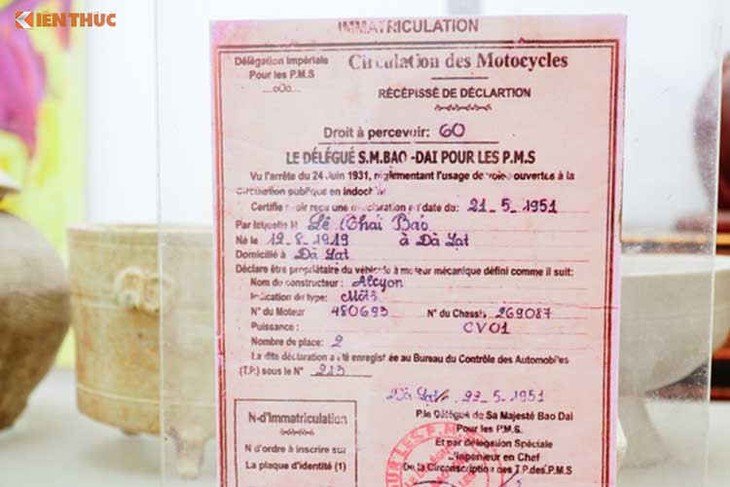 KIẾN THỨC
IMMATRICULATION
Délégation Impériale
Pour les P.M.S
oOo
Circulation des Motocycles
RÉCÉPISSÉ DE DÉCLARTION
Droit à percevoir: 60
LE DÉLÉGUÉ S.M.BAO -DAI POUR LES P.M.S
Vu l'arrête du 24 Juin 1931, réglementant l'usage de voie ouvertes à la
Circulation publique en Indoch
Certifie avoir reçu une déclaration en date du: 21_5_1951
Par laquelle M Lê Thái Bảo
Né le 12_8_1919 à Đà Lạt
Domicilié à Đà Lạt
Déclare être propriétaire du véhicule à moteur mécanique défini comme il suit:
Nom du constructeur: Alcyon
Indication du type: Môtô
N° du Moteur 480693 N° du Chassis 269087
Puissance: CV01
Nombre de place: 2
La dite déclaration a été enregistrée au Bureau du Contrôle des Automobiles
(T.P.) sous le N° 223
Đà Lạt 23_5_1951
P.le Délégué de Sa Majesté Bao Dai
Pour les P.M.S.
Et par délégation Spéciale
L'ingenieur en Chef
De la Circonscription des T.P.des P.M.S
N-d'Immatriculation
N d'ordre à inscrire sur
La plaque d'identité (1)